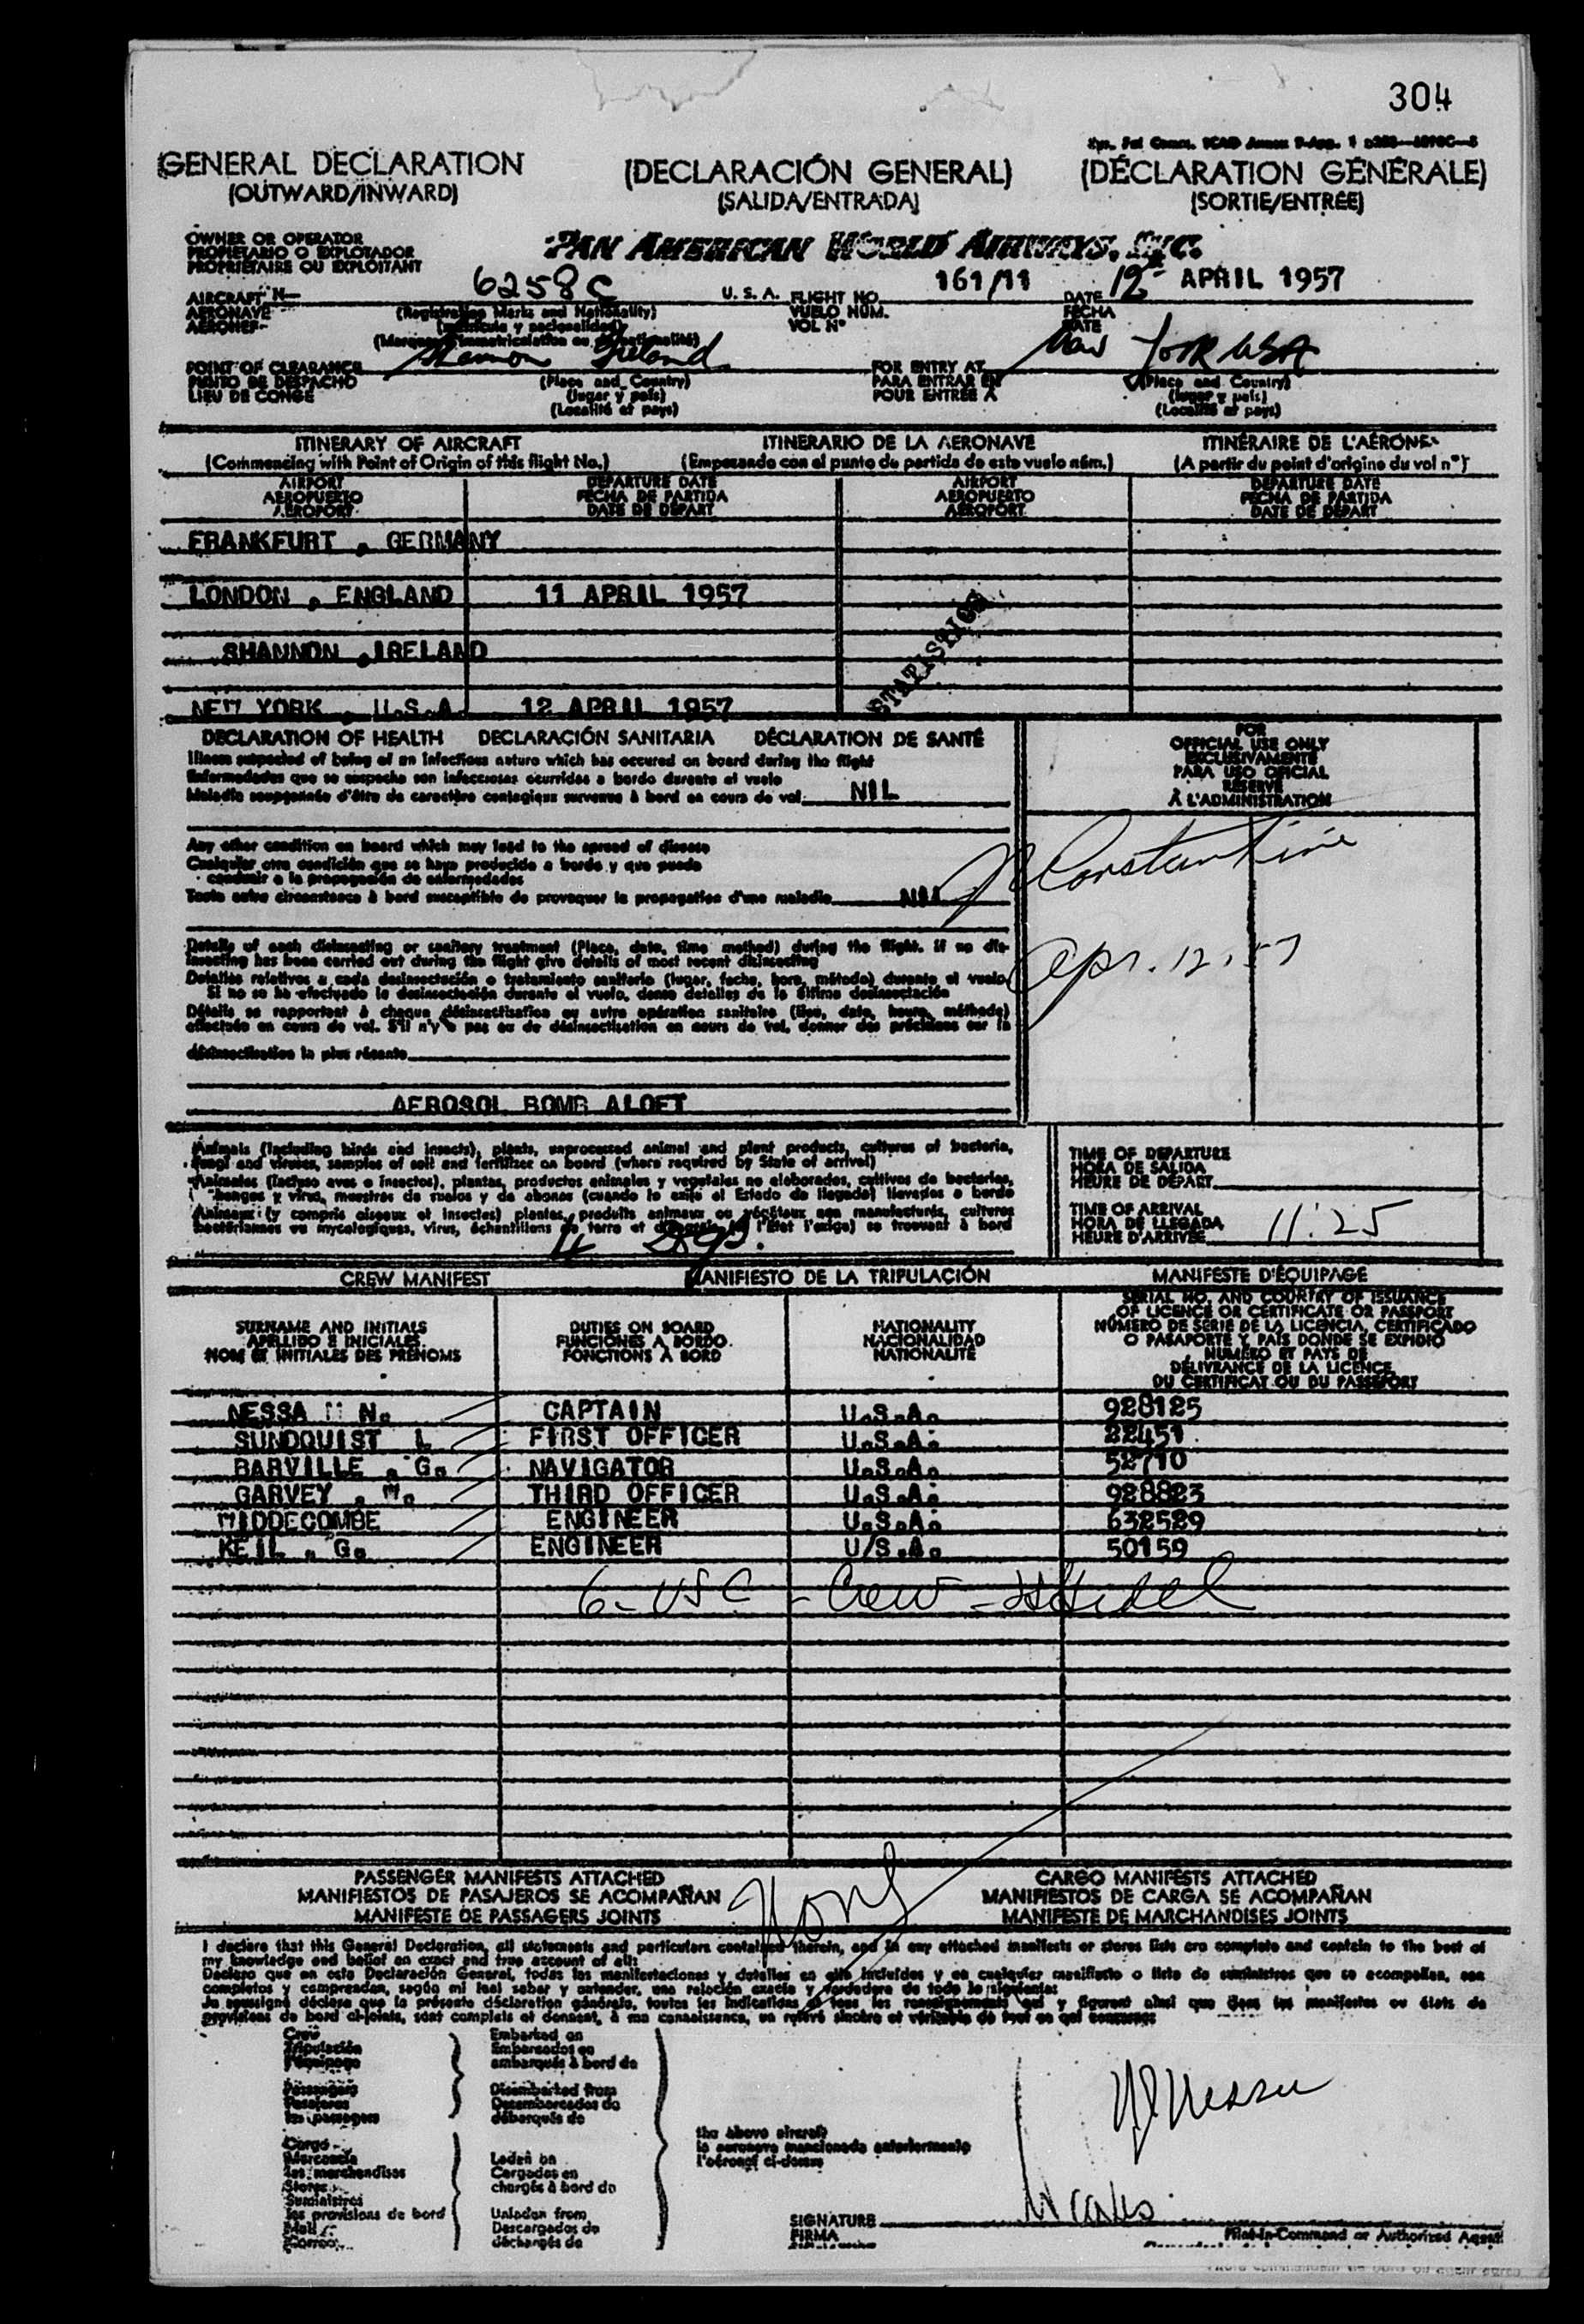 304
GENERAL DECLARATION (DECLARACIÓN GENERAL) (DÉCLARATION GÉNÉRALE)
(OUTWARD/INWARD) (SALIDA/ENTRADA) (SORTIE/ENTRÉE)
OWNER OR OPERATOR
PROPIETARIO O EXPLOTADOR
PROPRIÉTAIRE OU EXPLOITANT
PAN AMERICAN WORLD AIRWAYS, INC.
AIRCRAFT N- 6258C U.S.A. FLIGHT NO. 161/11 DATE 12 APRIL 1957
AERONAVE (Registration Marks and Nationality) VUELO NÚM. FECHA
AÉRONEF (matrícula y nacionalidad) VOL Nº DATE
POINT OF CLEARANCE Shannon Ireland FOR ENTRY AT New York USA
PUNTO DE DESPACHO (Place and Country) PARA ENTRAR EN (Place and Country)
LIEU DE CONGÉ (lugar y país) POUR ENTRÉE À (lugar y país)
(Localité et pays) (Localité et pays)
ITINERARY OF AIRCRAFT ITINERARIO DE LA AERONAVE ITINÉRAIRE DE L'AÉRONEF
(Commencing with Point of Origin of this flight No.) (Empezando con el punto de partida de este vuelo núm.) (A partir du point d'origine du vol nº)
AIRPORT DEPARTURE DATE AIRPORT DEPARTURE DATE
AEROPUERTO FECHA DE PARTIDA AEROPUERTO FECHA DE PARTIDA
AÉROPORT DATE DE DÉPART AÉROPORT DATE DE DÉPART
FRANKFURT , GERMANY
LONDON , ENGLAND 11 APRIL 1957
STATISTICS
SHANNON , IRELAND
NEW YORK , U.S.A. 12 APRIL 1957
DECLARATION OF HEALTH DECLARACIÓN SANITARIA DÉCLARATION DE SANTÉ
Illness suspected of being of an infectious nature which has occured on board during the flight
Enfermedades que se sospecha son infecciosas ocurridas a bordo durante el vuelo
Maladie soupçonnée d'être de caractère contagieux survenue à bord en cours de vol NIL
FOR
OFFICIAL USE ONLY
EXCLUSIVAMENTE
PARA USO OFICIAL
RÉSERVÉ
À L'ADMINISTRATION
Any other condition on board which may lead to the spread of disease
Cualquier otra condición que se haya producido a bordo y que pueda
conducir a la propagación de enfermedades
Toute autre circonstance à bord susceptible de provoquer la propagation d'une maladie NIL
Constantine
Apr. 12, 57
Details of each disinsecting or sanitary treatment (Place, date, time method) during the flight. If no dis-
insecting has been carried out during the flight give details of most recent disinsecting
Detalles relativos a cada desinsectación o tratamiento sanitario (lugar, fecha, hora, método) durante el vuelo
Si no se ha efectuado la desinsectación durante el vuelo, dense detalles de la última desinsectación
Détails se rapportant à chaque désinsectisation ou autre opération sanitaire (lieu, date, heure, méthode)
effectuée en cours de vol. S'il n'y a pas eu de désinsectisation en cours de vol, donner des précisions sur la
désinsectisation la plus récente
AEROSOL BOMB ALOFT
Animals (including birds and insects), plants, unprocessed animal and plant products, cultures of bacteria,
fungi and viruses, samples of soil and fertilizer on board (where required by State of arrival)
Animales (incluso aves e insectos), plantas, productos animales y vegetales no elaborados, cultivos de bacterias,
hongos y virus, muestras de suelos y de abonos (cuando lo exija el Estado de llegada) llevados a bordo
Animaux (y compris oiseaux et insectes) plantes, produits animaux ou végétaux non manufacturés, cultures
bactériennes ou mycologiques, virus, échantillons de terre et d'engrais l'État l'exige) se trouvant à bord
4 Dogs.
TIME OF DEPARTURE
HORA DE SALIDA
HEURE DE DÉPART
TIME OF ARRIVAL
HORA DE LLEGADA
HEURE D'ARRIVÉE 11:25
CREW MANIFEST MANIFIESTO DE LA TRIPULACIÓN MANIFESTE D'ÉQUIPAGE
SURNAME AND INITIALS DUTIES ON BOARD NATIONALITY
APELLIDO E INICIALES FUNCIONES A BORDO NACIONALIDAD
NOM ET INITIALES DES PRÉNOMS FONCTIONS À BORD NATIONALITÉ
SERIAL NO. AND COUNTRY OF ISSUANCE
OF LICENCE OR CERTIFICATE OR PASSPORT
NÚMERO DE SERIE DE LA LICENCIA, CERTIFICADO
O PASAPORTE Y PAÍS DONDE SE EXPIDIÓ
NUMÉRO ET PAYS DE
DÉLIVRANCE DE LA LICENCE
DU CERTIFICAT OU DU PASSEPORT
NESSA N. CAPTAIN U.S.A. 928125
SUNDQUIST L FIRST OFFICER U.S.A. 22451
BARVILLE , G. NAVIGATOR U.S.A. 52710
GARVEY , M. THIRD OFFICER U.S.A. 928823
MIDDECOMBE ENGINEER U.S.A. 632529
KEIL , G. ENGINEER U/S.A. 50159
6 - USC - Crew -
PASSENGER MANIFESTS ATTACHED CARGO MANIFESTS ATTACHED
MANIFIESTOS DE PASAJEROS SE ACOMPAÑAN MANIFIESTOS DE CARGA SE ACOMPAÑAN
MANIFESTE DE PASSAGERS JOINTS MANIFESTE DE MARCHANDISES JOINTS
I declare that this General Declaration, all statements and particulars contained therein, and in any attached manifests or stores lists are complete and contain to the best of
my knowledge and belief an exact and true account of all:
Declaro que en esta Declaración General, todas las manifestaciones y detalles en ella incluídos y en cualquier manifiesto o lista de suministros que se acompañen, son
completos y comprenden, según mi leal saber y entender, una relación exacta y verdadera de todo lo siguiente:
Je soussigné déclare que la présente déclaration générale, toutes les indications et tous les renseignements qui y figurent ainsi que dans les manifestes ou états de
provisions de bord ci-joints, sont complets et donnent, à ma connaissance, un relevé sincère et véritable de tout ce qui concerne:
Crew Embarked on
Tripulación Embarcados en
l'équipage embarqués à bord de
Passengers Disembarked from
Pasajeros Desembarcados de
les passagers débarqués de
the above aircraft
la aeronave mencionada anteriormente
l'aéronef ci-dessus
Cargo
Mercancía Laden on
les marchandises Cargados en
Stores chargés à bord de
Suministros
les provisions de bord Unladen from
Mail Descargados de
Correo déchargés de
SIGNATURE
FIRMA
Pilot-in-Command or Authorized Agent